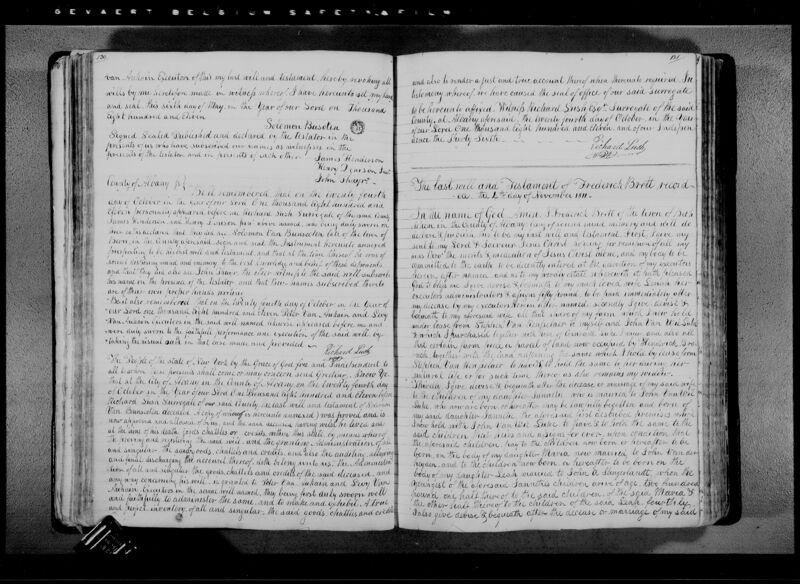 GEVAERT BELGIUM SAFETY FILM
130
van Aulain Executors of this my last will and testament, hereby revoking all
wills by me heretofore made in witness whereof I have hereunto set my hand
and seal this sixth day of May in the Year of our Lord one Thousand
Eight hundred and eleven
Solomon Bunsolen
Signed Sealed Published and declared by the testator in the
presents of us who have subscribed our names as witnesses in the
presents of the testator and in presents of each other
James Henderson
John
County of Albany
Be it remembered, that on the twenty fourth
day of October in the year of our Lord One thousand Eight hundred and
Eleven personally appeared before me Richard Lush Surrogate of the said County
James Henderson and Henry above named, who being duly sworn on
their oaths declared that they did see Solomon Van Bunsolen late of the town of
in the County aforesaid sign and seal the Instrument hereunto annexed
purporting to be his last will and testament, and that at the time thereof he was of
sound disposing mind and memory to the best knowledge and belief of these deponents
and that they did also see John the other witness to the said will subscribe
his name in the presence of the testator and that they names subscribed thereto
are of their own proper hands writing
Be it also remembered that on the twenty fourth day of October in the Year of
our Lord one thousand Eight hundred and Eleven Peter Van and Levy
Van Executors in the said will named likewise appeared before me and
were duly sworn to the faithful performance and execution of the said will by
taking the usual oath in that case made and provided
Richard Lush
The People of the state of New York by the Grace of God free and Independent to
all to whom these presents shall come or may concern send Greeting. Know Ye
that at the City of Albany in the County of Albany on the twenty fourth day
of October in the Year of our Lord One thousand Eight hundred and Eleven before
Richard Lush Surrogate of our said County the last will and testament of Solomon
Van Bunsolen deceased (a copy whereof is hereunto annexed) was proved and is
now approved and allowed of by us, and the said deceased having whilst he lived and
at the time of his death goods chattles or credits within this state, by means whereof
the proving and registering the said will and the granting Administration of all
and singular the goods chattles and credits, and also the auditing allowing
and final discharging the account thereof doth belong unto us. The Administra-
tion of all and singular the goods chattles and credits of the said deceased and
any way concerning his will is granted to Peter Van and Levy Van
Executors in the same will named, they being first duly sworn well
and faithfully to administer the same, and to make and exhibit a true
and perfect inventory of all and singular the said goods chattles and credits
131
and also to render a just and true account thereof when thereunto required In
testimony whereof we have caused the seal of office of our said Surrogate
to be hereunto affixed. Witness Richard Lush Esqr. Surrogate of the said
County, at Albany aforesaid the twenty fourth day of October in the Year
of our Lord One thousand Eight hundred and Eleven and of our Indepen-
dence the Thirty Sixth
Richard Lush
The last will and Testament of Frederick Brott record-
ed the 2nd day of November 1811.
In the name of God Amen. I Frederick Brott of the town of Beth-
lehem in the County of Albany being of sound mind memory and will do
declare & publish this to be my last will and testament. First I leave my
soul to my Lord & Saviour Jesus Christ hoping for remission of all my
sins thro' the merits & mediation of Jesus Christ alone, and my body to be
committed to the earth to be decently interred at the discretion of my executors
herein after named, and as to my worldly estate wherewith it hath pleased
God to bless me I give devise & bequeath to my well beloved wife
executors administrators & assigns fifty pounds to be paid immediately after
my decease by my executors herein after named. Secondly I give devise &
bequeath to my aforesaid wife all that share of my farm which I now hold
under lease from Stephen Van Rensselaer to myself and John Van Wie
& which I purchased together with one of and also all
that certain farm piece or parcel of land now occupied by Hendrick Brott
together with the land adjoining the same which I hold by lease from
Stephen Van Rensselaer to have & to hold the same to her during her
natural life or for such time thereof as she remains my widow.
Thirdly I give devise & bequeath after the decease or marriage of my said wife
to the children of my daughter who is married to John Van Wie
who now are born or hereafter may be lawfully begotten and born of
my said daughter the aforesaid first described premises which
I now hold with John Van Wie to have & to hold the same to the
said children their heirs and assigns for ever upon condition that
the aforesaid children pay to the children now or hereafter to be
born, on the body of my daughter Maria now married to John Van der
and to the children now born or hereafter to be born on the
body of my daughter Leah married to John A. when the
youngest of the aforesaid children arrive of age, two hundred
pounds, one half thereof to the said children of the said Maria &
the other half thereof to the children of the said Leah fourthly
I also give devise & bequeath after the decease or marriage of my said